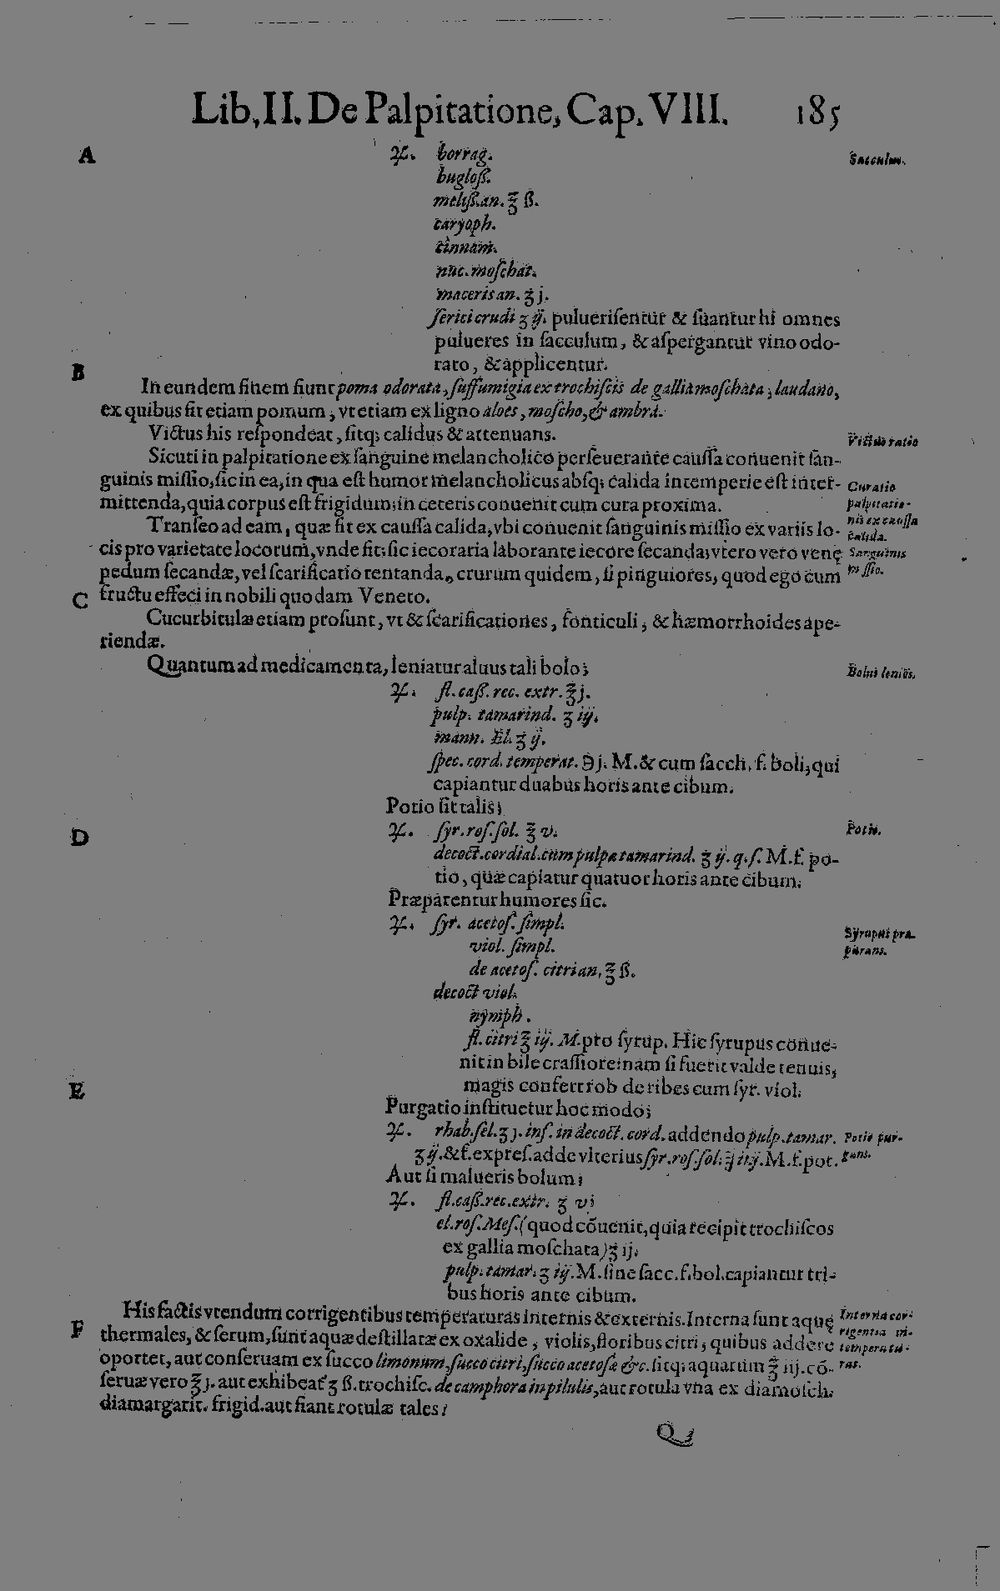 Lib. II. De Palpitatione, Cap. VIII. 185
A ℞. borrag. Sacculus.
bugloß.
meliß. an. ℥ ß.
caryoph.
cinnam.
nuc. moſchat.
maceris an. ʒ j.
ſerici crudi ʒ ij. pulueriſentur & ſuantur hi omnes
pulueres in ſacculum, & aſpergantur vino odo-
rato, & applicentur.
B In eundem finem fiunt poma odorata, ſuffumigia ex trochiſcis de gallia moſchata, laudano,
ex quibus fit etiam pomum, vt etiam ex ligno aloes, moſcho, & ambra.
Victus his reſpondeat, ſitq; calidus & attenuans. Victus ratio
Sicuti in palpitatione ex ſanguine melancholico perſeuerante cauſſa conuenit ſan-
guinis miſſio, ſic in ea, in qua eſt humor melancholicus abſq; calida intemperie eſt inter- Curatio
mittenda, quia corpus eſt frigidum; in ceteris conuenit cum cura proxima. palpitatio-
Tranſeo ad eam, quæ fit ex cauſſa calida, vbi conuenit ſanguinis miſſio ex variis lo- nis ex cauſſa calida.
cis pro varietate locorum, vnde fit: ſic iecoraria laborante iecore ſecanda; vtero vero venę Sanguinis
pedum ſecandæ, vel ſcarificatio tentanda, crurum quidem, ſi pinguiores, quod ego cum miſſio.
C fructu effeci in nobili quodam Veneto.
Cucurbitulæ etiam proſunt, vt & ſcarificationes, fonticuli, & hæmorrhoides ape-
riendæ.
Quantum ad medicamenta, leniatur aluus tali bolo; Bolus leniēs.
℞. fl. caß. rec. extr. ℥ j.
pulp. tamarind. ʒ iij.
mann. El. ʒ ij.
ſpec. cord. temperat. ℈ j. M. & cum ſacch. f. boli, qui
capiantur duabus horis ante cibum.
Potio ſit talis;
D ℞. ſyr. roſ. ſol. ℥ v. Potio.
decoct. cordial. cum pulpa tamarind. ℥ ij. q. ſ. M. f. po-
tio, quæ capiatur quatuor horis ante cibum.
Præparentur humores ſic.
℞. ſyr. acetoſ. ſimpl. Syrupus præ-
viol. ſimpl. parans.
de acetoſ. citri an. ℥ ß.
decoct viol.
nymph.
fl. citri ℥ iij. M. pro ſyrup. Hic ſyrupus conue-
nit in bile craſſiore: nam ſi fuerit valde tenuis,
E magis confert rob de ribes cum ſyr. viol.
Purgatio inſtituetur hoc modo;
℞. rhab. ſel. ʒ j. inf. in decoct. cord. addendo pulp. tamar. Potio pur-
ʒ ij. & f. expreſ. adde vlterius ſyr. roſ. ſol. ℥ iiij. M. f. pot. gans.
Aut ſi malueris bolum;
℞. fl. caß. rec. extr. ʒ vj
el. roſ. Meſ. (quod cōuenit, quia recipit trochiſcos
ex gallia moſchata) ʒ ij.
pulp. tamar. ʒ iij. M. ſine ſacc. f. bol. capiantur tri-
bus horis ante cibum.
F His factis vtendum corrigentibus temperaturas internis & externis. Interna ſunt aquę Interna cor-
thermales, & ſerum, ſunt aquæ deſtillatæ ex oxalide, violis, floribus citri, quibus addere rigentia in-
oportet, aut conſeruam ex ſucco limonum, ſucco citri, ſucco acetoſæ &c. ſitq; aquarum ℥ iij. cō- temperatu-
ſeruæ vero ℥ j. aut exhibeatʳ ʒ ß. trochiſc. de camphora in pilulis, aut rotula vna ex diamoſch. ras.
diamargarit. frigid. aut fiant rotulæ tales;
Q